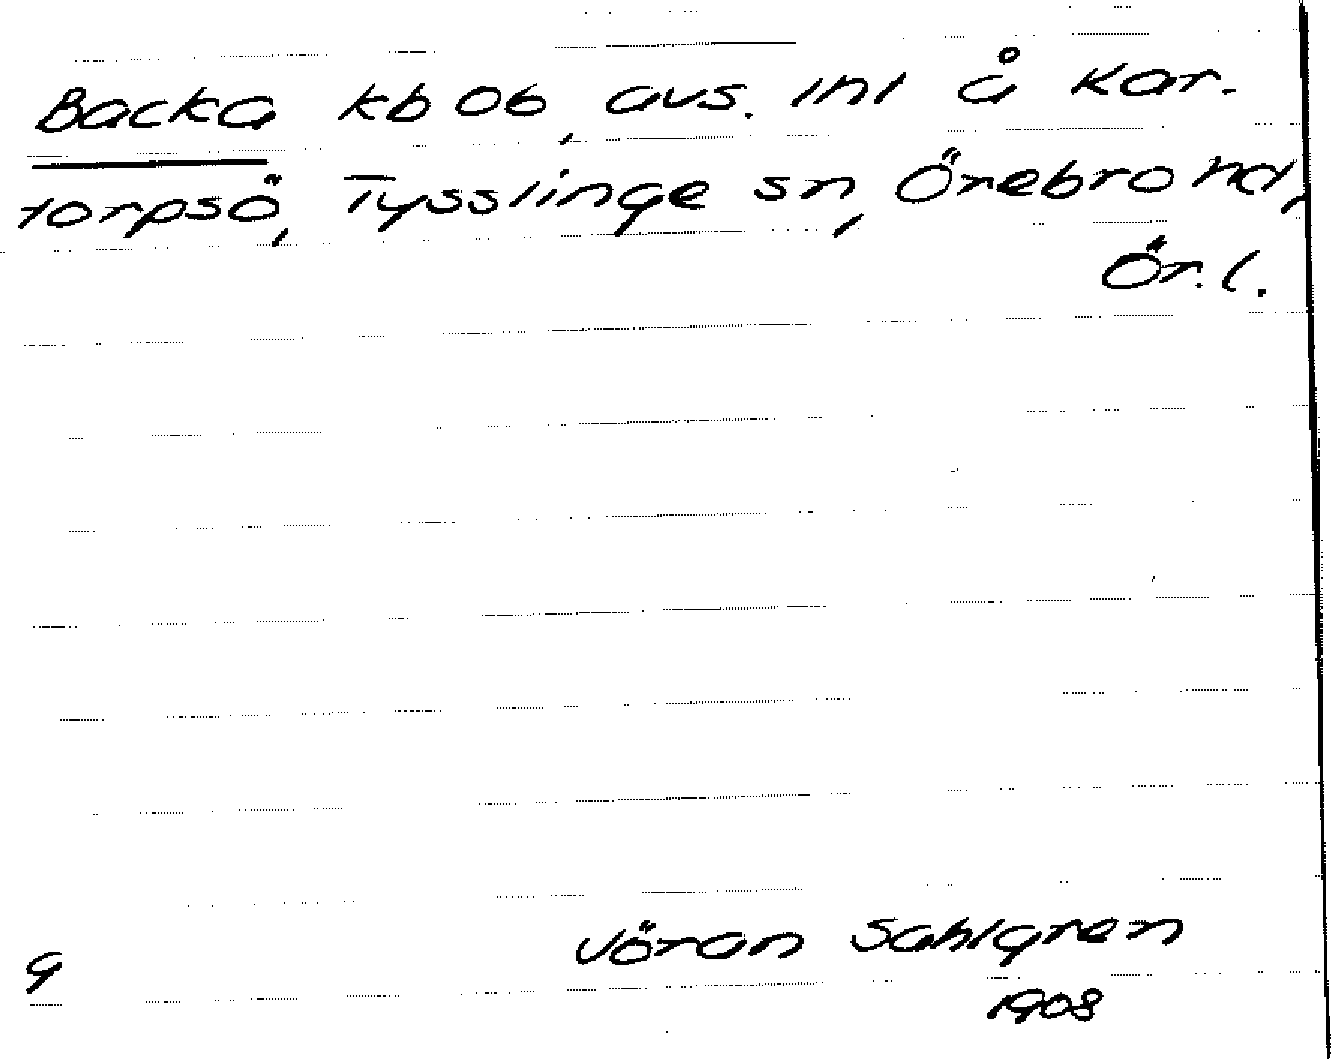 Backa kb ob, avs. inl å Kar-
torpsö, Tysslinge sn, Örebro hd,
Ör. l.
Jöran Sahlgren
9
1908